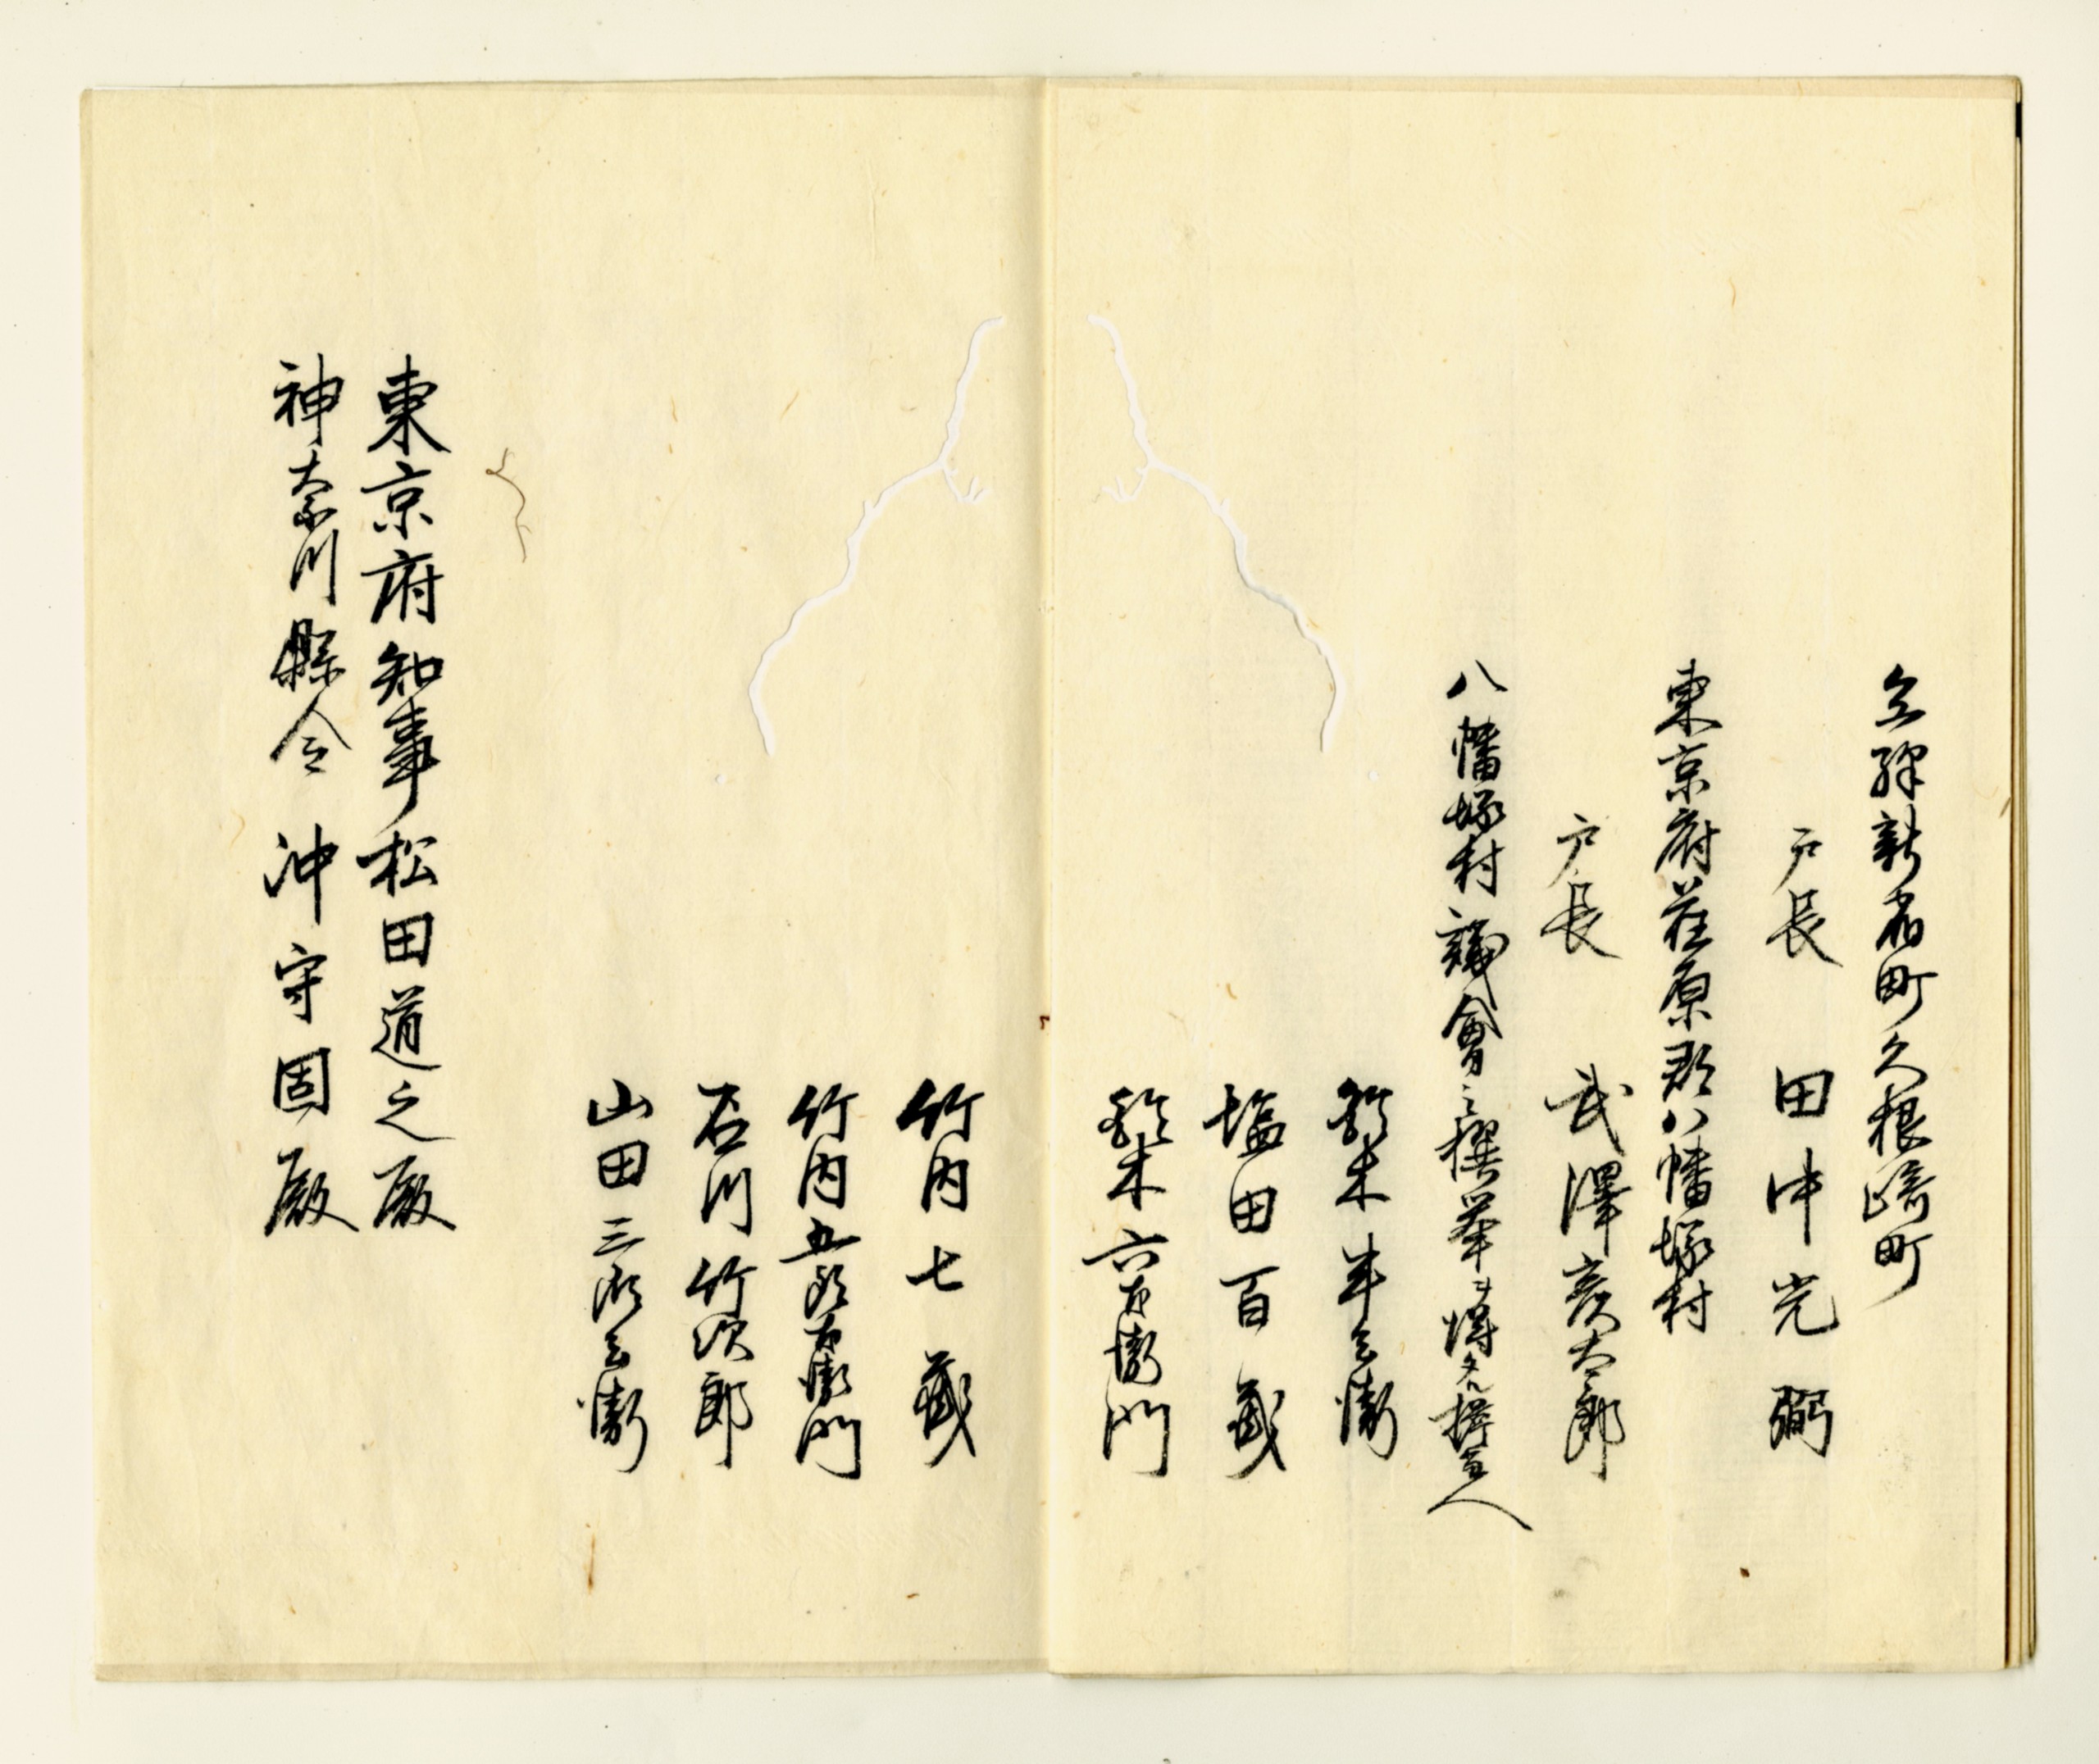 久根崎町
戸長 田中光弼
東京府荏原郡八幡塚村
戸長 武澤亥太郎
八幡塚村議會之撰挙ヲ得タル擇宜人
鈴木半兵衛
塩田百蔵
鈴木六右衛門
竹内七蔵
竹内五郎右衛門
石川竹次郎
山田三郎兵衛
東京府知事松田道之殿
神奈川縣令 沖守固殿